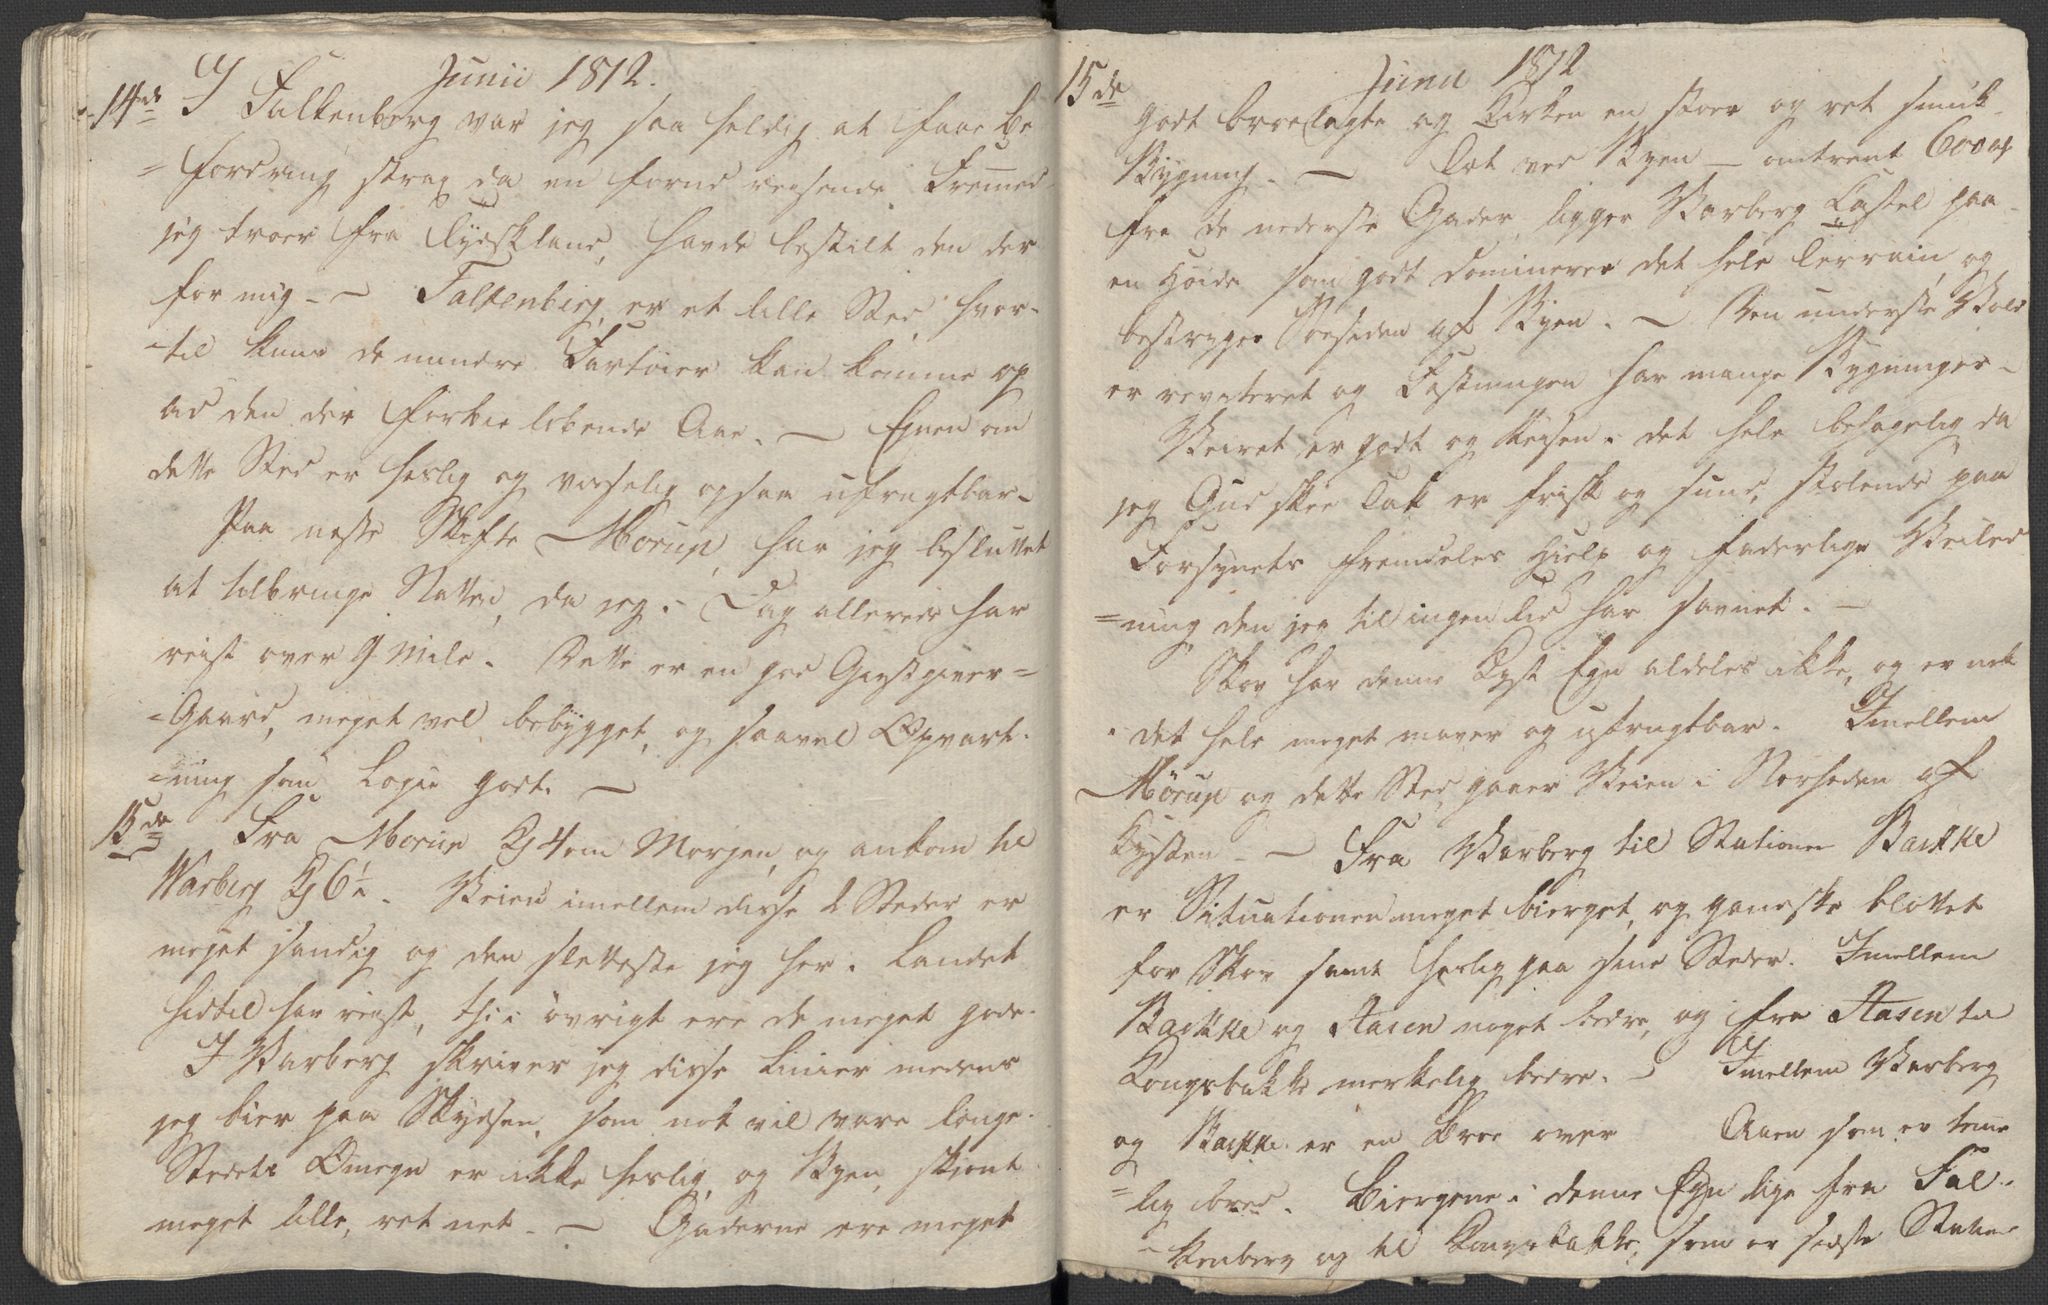 Junii 1812.
14de I Falkenberg var jeg saa heldig at faae be
=fordring strax da en forud reisende Fremmed
jeg troer fra Tydskland, havde bestilt den der
for mig - - Falkenberg, er et lille Sted, hvor-
til kuns de mindre Fartøier kan komme op
ad den der forbie løbende Aae. - Egnen om
dette Sted er heslig og  ogsaa ufrugtbar -
Paa næste Skifte Morup, har jeg besluttet
at tilbringe Natten, da jeg i Dag allerede har
reist over 9 Mile. Dette er en god Giestgiver=
=Gaard, meget vel bebygget, og saavel Opvart-
=ning som Logie godt. -
15de Fra Morup Kl 4 om Morgen, og ankom til
Warberg Kl 6½. Veien imellem disse 2 Steder er
meget sandig og den sletteste jeg her i Landet
hidtil har reist, thi i øvrigt ere de meget gode.
I Warberg skriver jeg disse Linier medens
jeg bier paa Skydsen, som nok vil vare længe.
Stedets Omegn er ikke heslig, og Byen, skjønt
meget lille, ret net. - Gaderne ere meget
15de Junii 1812
godt broelagte og Kirken en stoer og ret smuk
Bygning. - Tæt ved Byen - omtrent 600 al
fra de nederste Gader, ligger Warberg Castel paa
en Høide som godt dominerer det hele Terrain, og
bestryger Søesiden af Byen. - Den underste Vold
er reviteret og Fæstningen har mange Bygninger -
Veiret er godt og Reisen i det hele behagelig da
jeg Gud skee Tak er frisk og sund, stolende paa
Forsynets fremdeles Hielp og faderlige Veiled
=ning, den jeg til ingen Tid har savnet. -
Skov har denne Kyst Egn aldeles ikke, og er
i det hele meget maver og ufrugtbar. Imellem
Mörup og dette Sted, gaaer Veien i Nærheden af
Kysten - - Fra Warberg til Stationen Backke
er Situationen meget bierget, og ganske blottet
for Skov samt heslig paa sine Steder. Imellem
Backke og Aasen noget bedre, og fra Aasen til
Kongsbakke merkelig bedre. - Imellem Warberg
og Backke er en Broe over Aaen som er teme
=lig bred. Biergene i denne Egn lige fra Fal-
=kenberg og til Kongsbakke, som er sidste Station